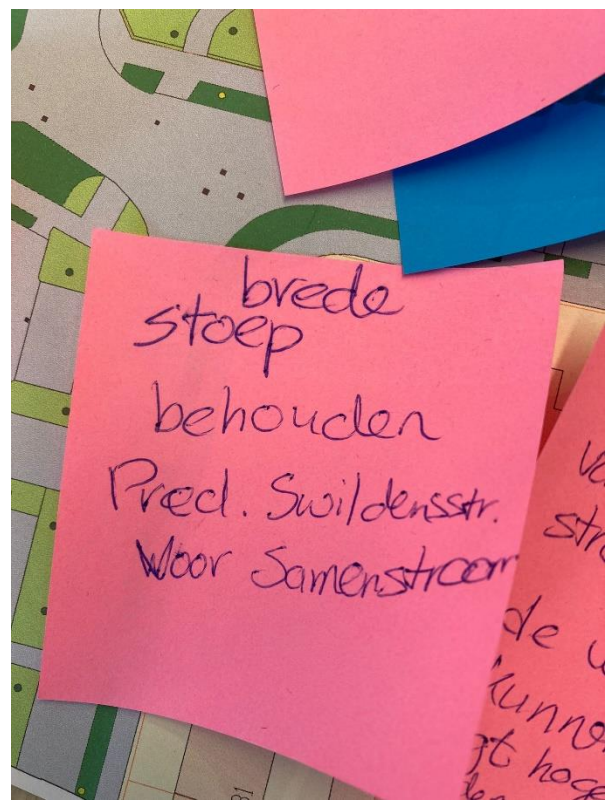 brede
stoep
behouden
Pred. Swildensstr.
Woor Samenstroom
de
kunne
gt hoge